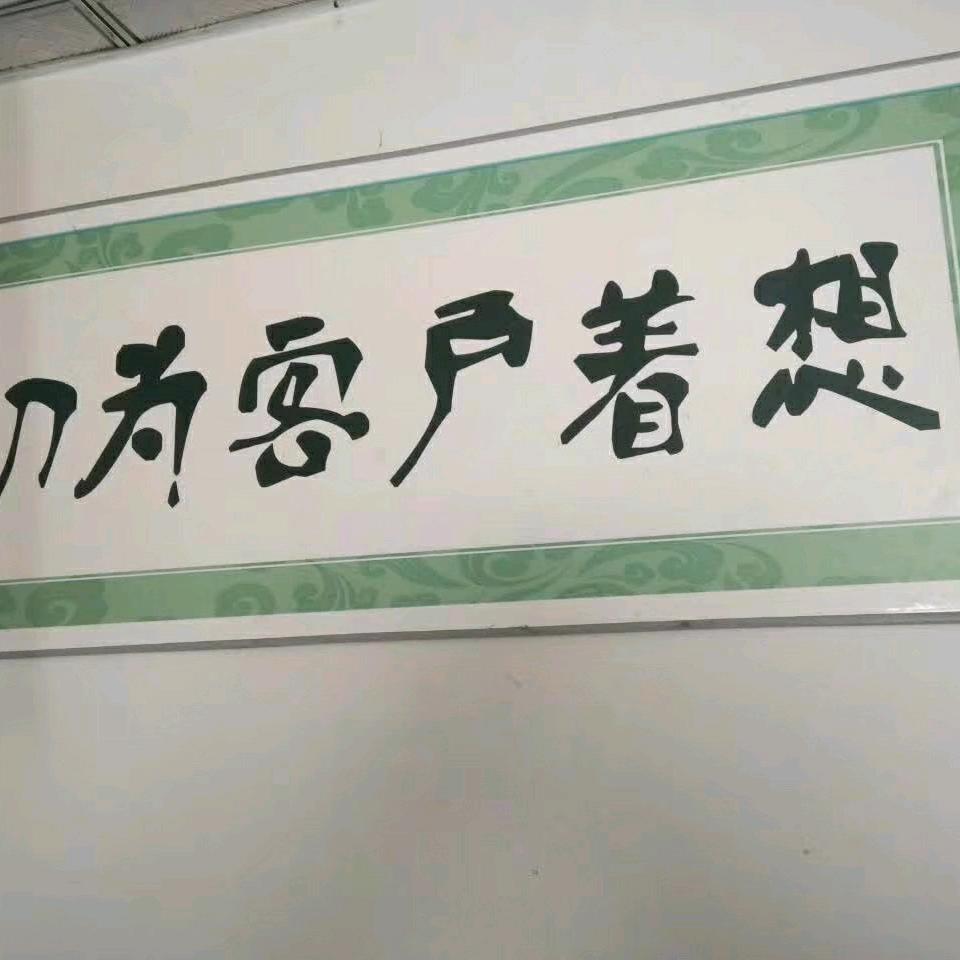 为客户着想